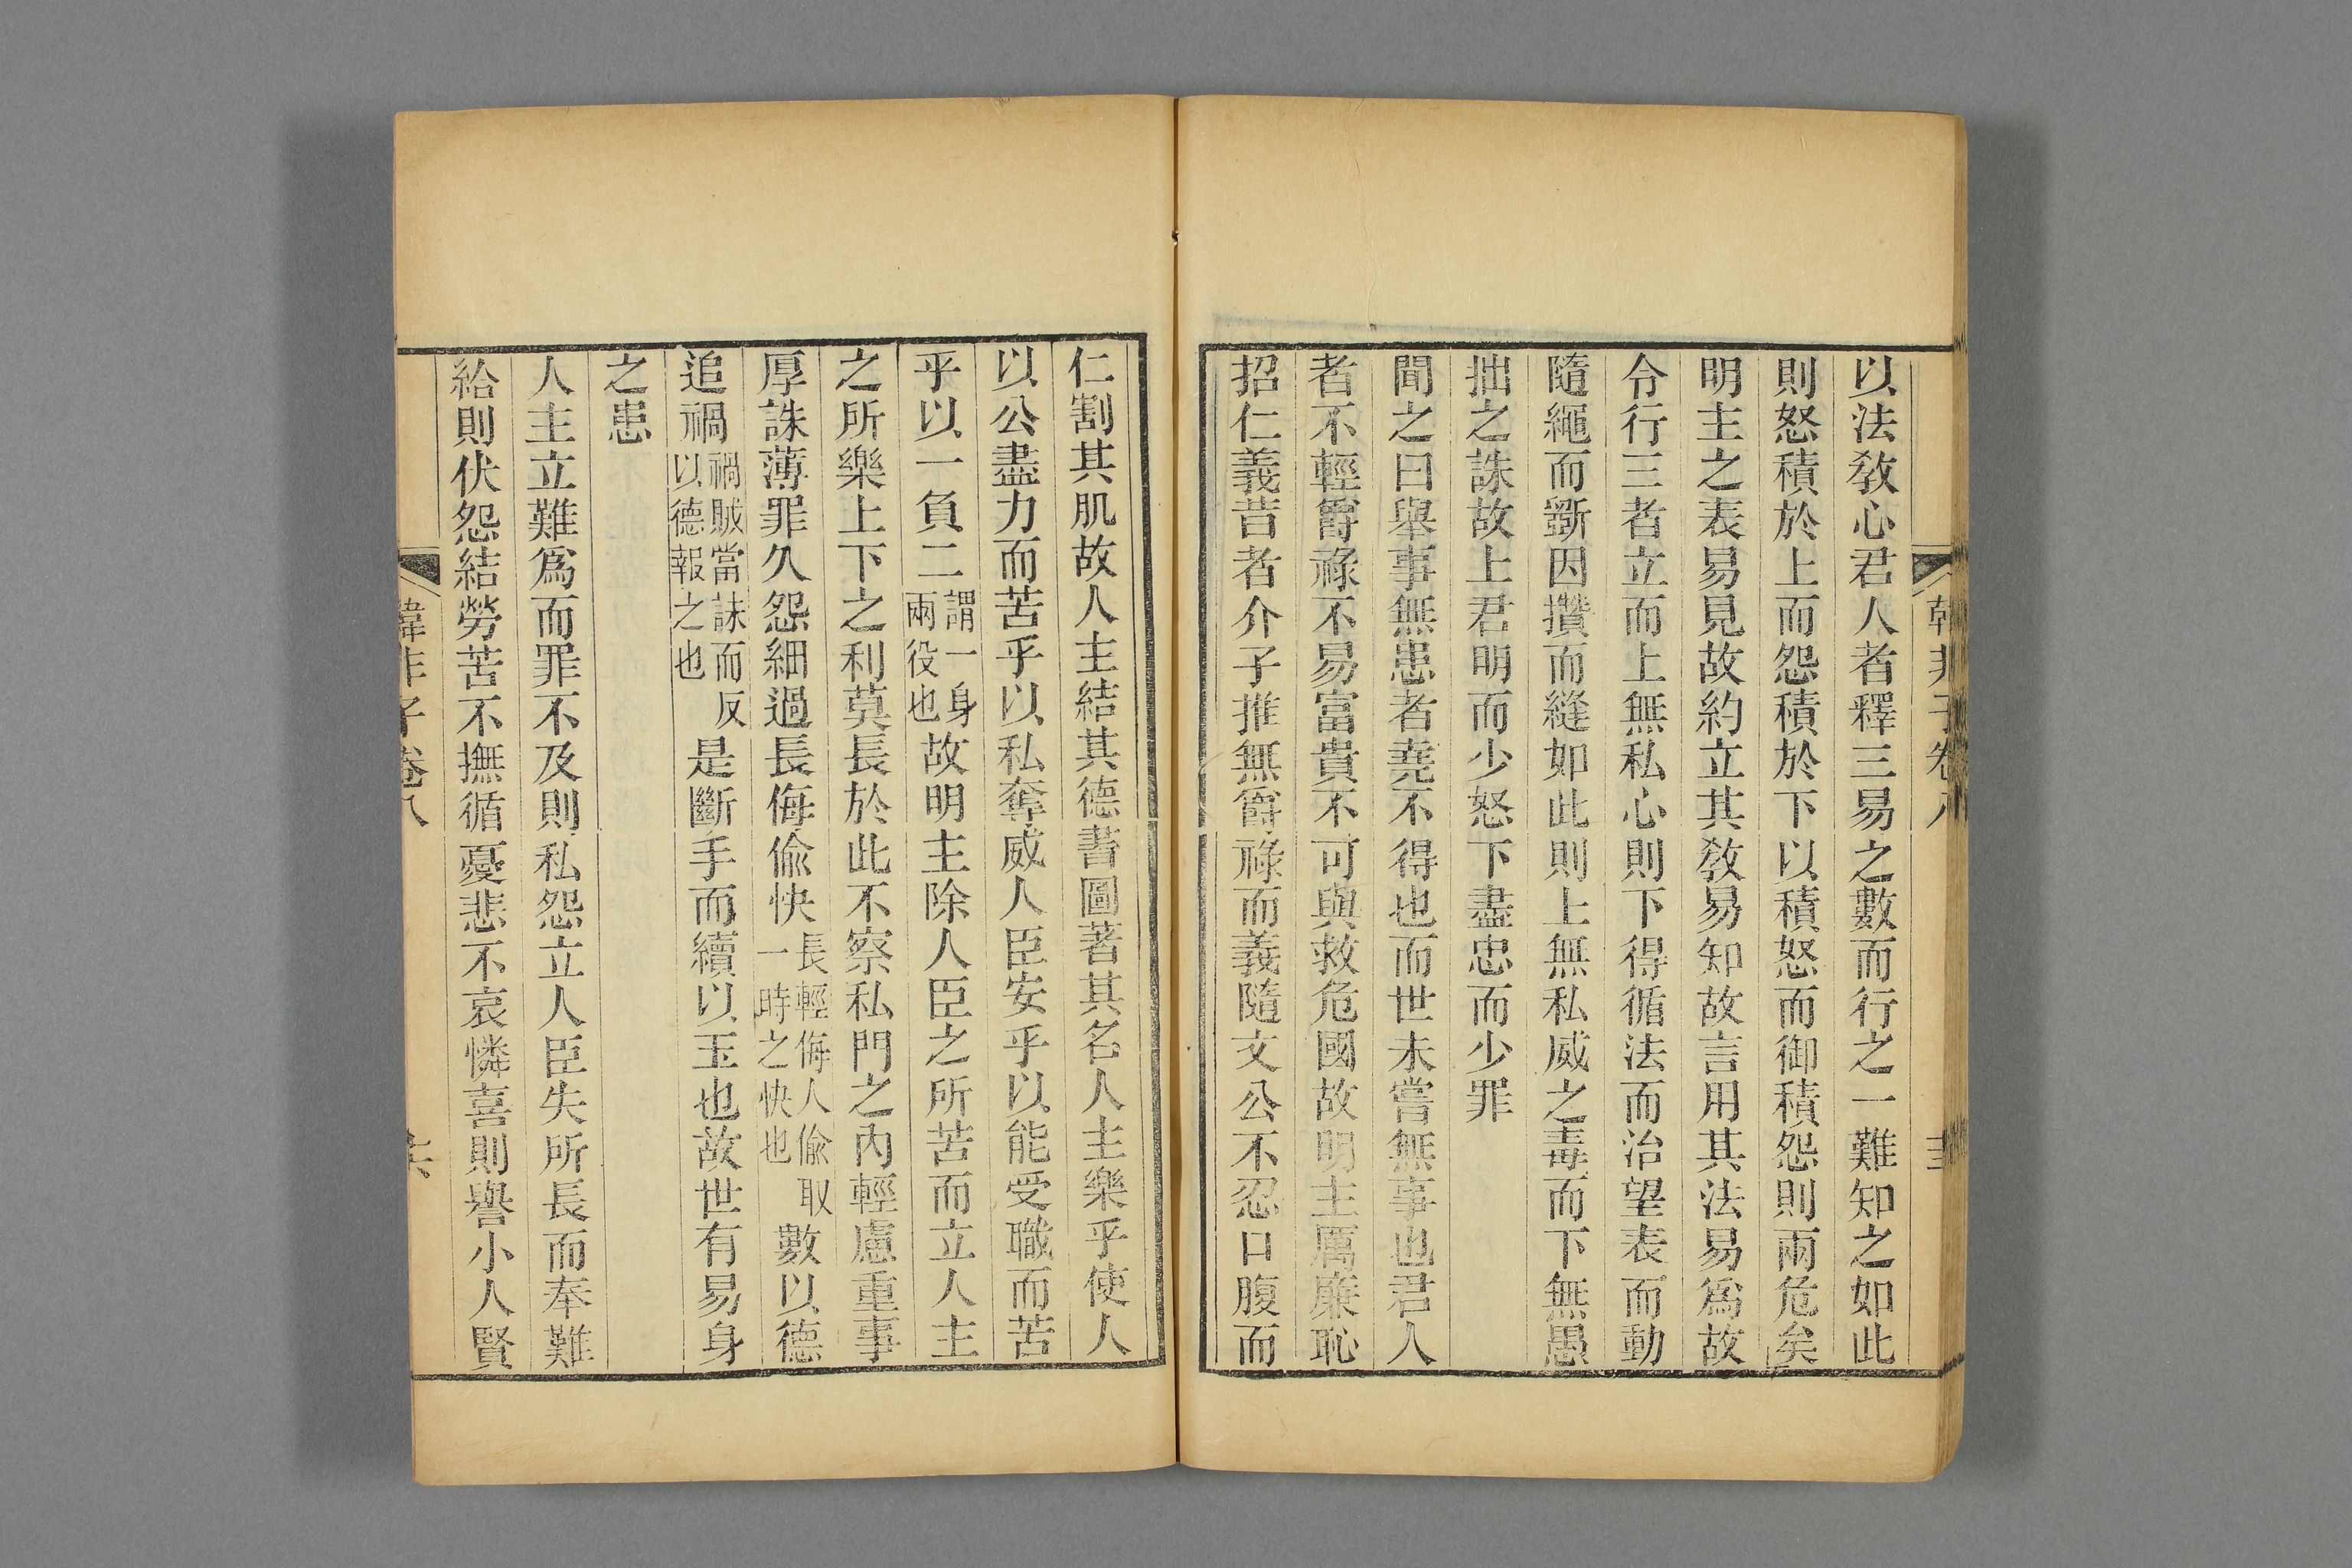 韓非子卷八
以法敎心君人者釋三易之數而行之一難知之如此
則怒積於上而怨積於下以積怒而御積怨則兩危矣
明主之表易見故約立其敎易知故言用其法易爲故
令行三者立而上無私心則下得循法而治望表而動
隨繩而斵因攢而縫如此則上無私威之毒而下無愚
拙之誅故上君明而少怒下盡忠而少罪
聞之曰舉事無患者堯不得也而世未嘗無事也君人
者不輕爵祿不易富貴不可與救危國故明主厲廉恥
招仁義昔者介子推無爵祿而義隨文公不忍口腹而
仁割其肌故人主結其德書圖著其名人主樂乎使人
以公盡力而苦乎以私奪威人臣安乎以能受職而苦
乎以一負二謂一身兩役也故明主除人臣之所苦而立人主
之所樂上下之利莫長於此不察私門之內輕慮重事
厚誅薄罪久怨細過長侮偸快長輕侮人偸取一時之快也數以德
追禍禍賊當誅而反以德報之也是斷手而續以玉也故世有易身
之患
人主立難爲而罪不及則私怨立人臣失所長而奉難
給則伏怨結勞苦不撫循憂悲不哀憐喜則譽小人賢
韓非子卷八